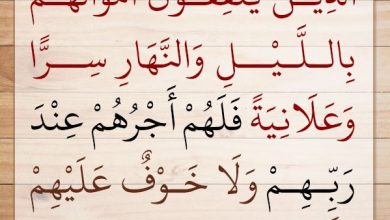 الَّذِينَ يُنْفِقُونَ أَمْوَالَهُمْ
بِاللَّيْلِ وَالنَّهَارِ سِرًّا
وَعَلَانِيَةً فَلَهُمْ أَجْرُهُمْ عِنْدَ
رَبِّهِمْ وَلَا خَوْفٌ عَلَيْهِمْ